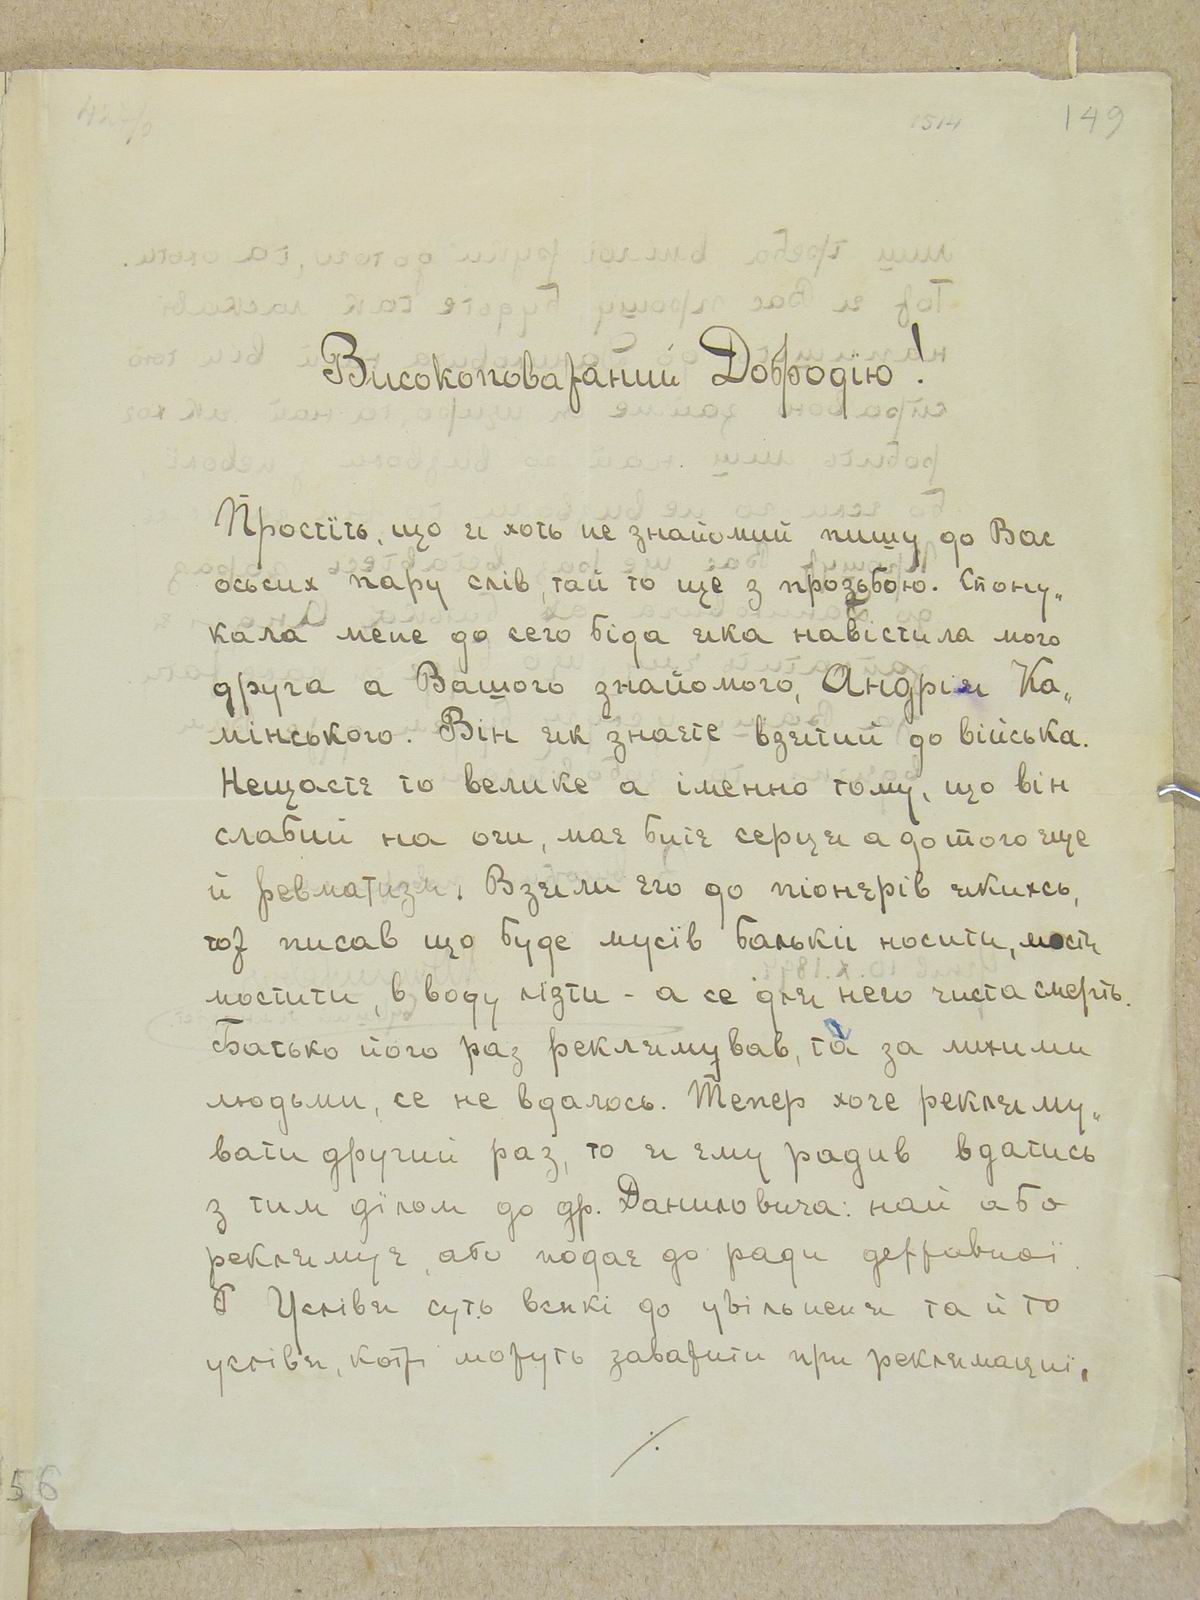 149
1514
Високоповажаний Добродїю!
Простїть, що я хоть не знайомий пишу до Вас
осьсих пару слів, тай то ще з прозьбою. Спону„
кала мене до сего біда яка навістила мого
друга а Вашого знайомого, Андрія Ка„
мінського. Він як знаєте взятий до війська.
Нещастє то велике а іменно тому, що він
слабий на очи, має битє серця а до того ще
й ревматизм. Взяли єго до піонєрів якихсь,
тож писав що буде мусїв бальки носити, мости
мостити, в воду лїзти - а се для него чиста смерть.
Батько його раз реклямував, та за лихими
людьми, се не вдалось. Тепер хоче реклямy„
вати другий раз, то я єму радив вдатись
з тим дїлом до др. Даниловича: най або
реклямує, або подає до ради державної.
Услівя суть всякі до увільненя та й то
услівя, котрі можуть заважити при реклямациї,
./.
56